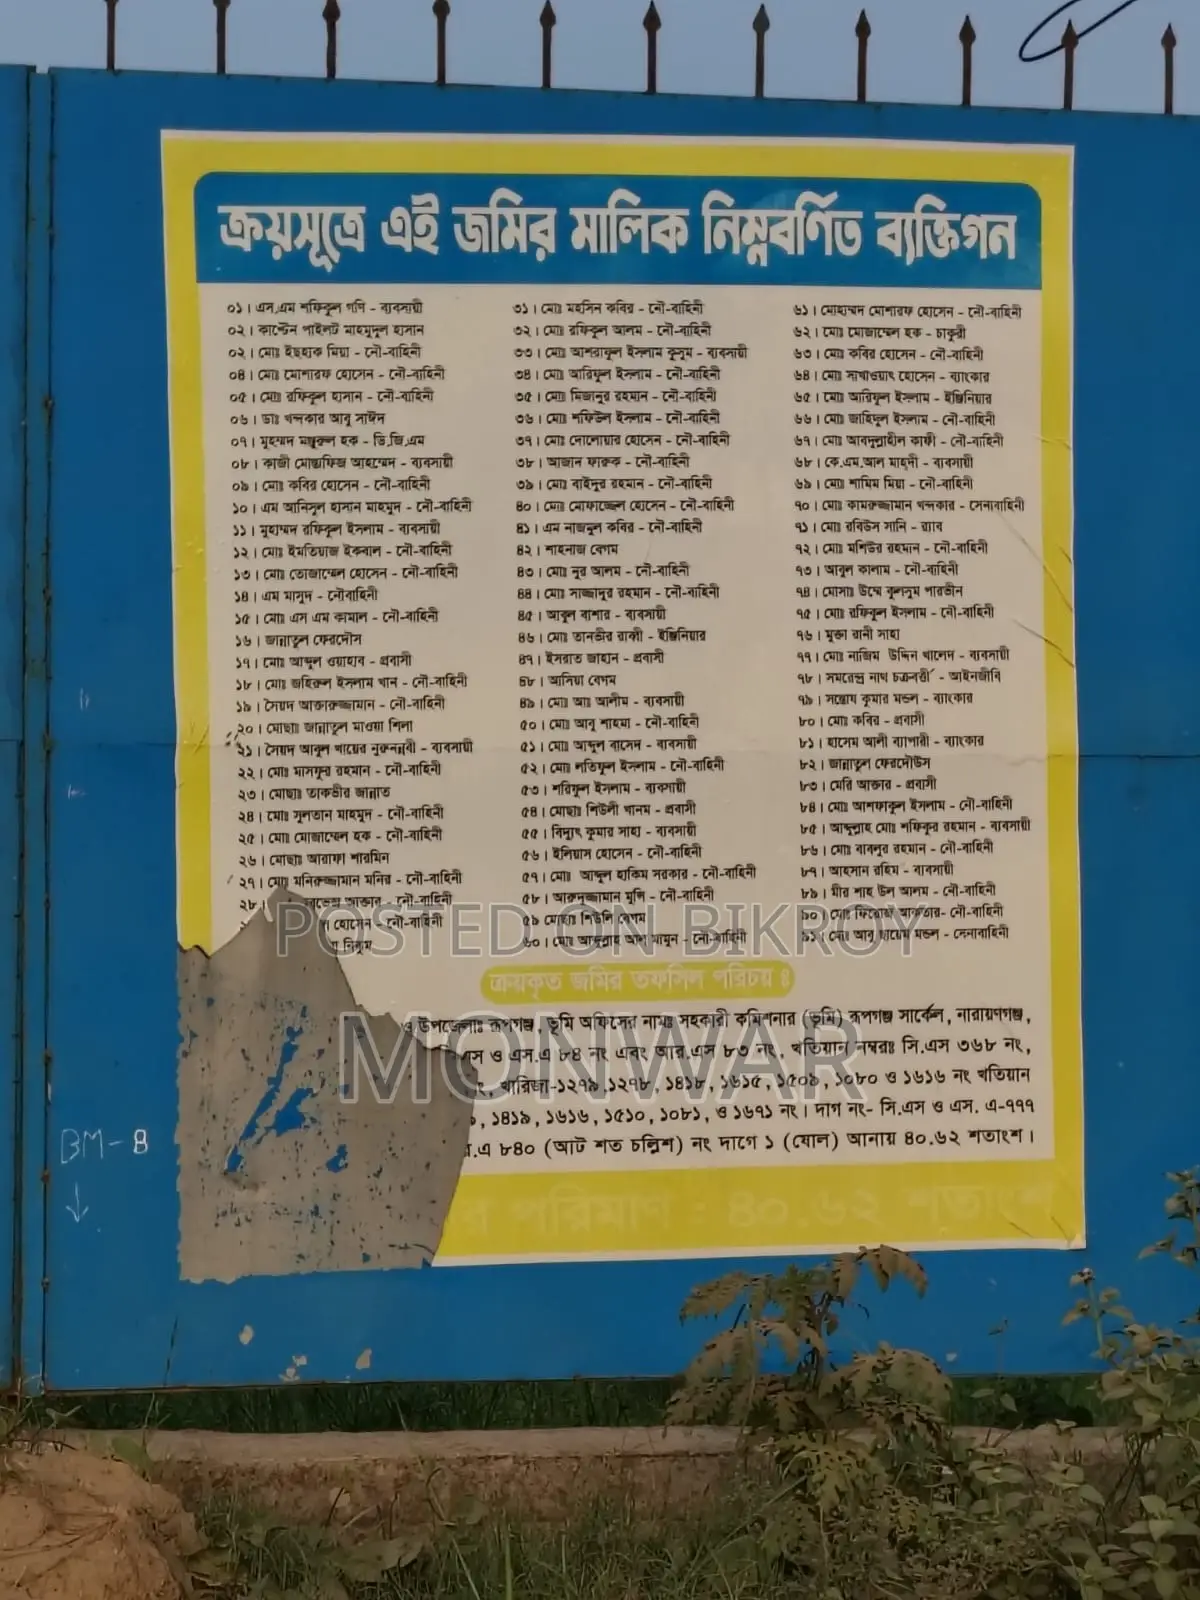 ক্রয়সূত্রে এই জমির মালিক নিম্নবর্ণিত ব্যক্তিগন
০১। এস.এম শফিকুল গণি - ব্যবসায়ী
০২। কাপ্টেন পাইলট মাহমুদুল হাসান
০২। মোঃ ইছহাক মিয়া - নৌ-বাহিনী
০৪। মোঃ মোশারফ হোসেন - নৌ-বাহিনী
০৫। মোঃ রফিকুল হাসান - নৌ-বাহিনী
০৬। ডাঃ খন্দকার আবু সাঈদ
০৭। মুহম্মদ মঞ্জুরুল হক - ডি,জি,এম
০৮। কাজী মোস্তাফিজ আহম্মেদ - ব্যবসায়ী
০৯। মোঃ কবির হোসেন - নৌ-বাহিনী
১০। এম আনিসুল হাসান মাহমুদ - নৌ-বাহিনী
১১। মুহাম্মদ রফিকুল ইসলাম - ব্যবসায়ী
১২। মোঃ ইমতিয়াজ ইকবাল - নৌ-বাহিনী
১৩। মোঃ তোজাম্মেল হোসেন - নৌ-বাহিনী
১৪। এম মাসুদ - নৌবাহিনী
১৫। মোঃ এস এম কামাল - নৌ-বাহিনী
১৬। জান্নাতুল ফেরদৌস
১৭। মোঃ আব্দুল ওয়াহাব - প্রবাসী
১৮। মোঃ জহিরুল ইসলাম খান - নৌ-বাহিনী
১৯। সৈয়দ আক্তারুজ্জামান - নৌ-বাহিনী
২০। মোছাঃ জান্নাতুল মাওয়া শিলা
২১। সৈয়দ আবুল খায়ের নুরুন্নবী - ব্যবসায়ী
২২। মোঃ মাসফুর রহমান - নৌ-বাহিনী
২৩। মোছাঃ তাকভীর জান্নাত
২৪। মোঃ সুলতান মাহমুদ - নৌ-বাহিনী
২৫। মোঃ মোজাম্মেল হক - নৌ-বাহিনী
২৬। মোছাঃ আরাফা শারমিন
২৭। মোঃ মনিরুজ্জামান মনির - নৌ-বাহিনী
২৮। আক্তার - নৌ-বাহিনী
হোসেন - নৌ-বাহিনী
নিঝুম
৩১। মোঃ মহসিন কবির - নৌ-বাহিনী
৩২। মোঃ রফিকুল আলম - নৌ-বাহিনী
৩৩। মোঃ আশরাফুল ইসলাম কুসুম - ব্যবসায়ী
৩৪। মোঃ আরিফুল ইসলাম - নৌ-বাহিনী
৩৫। মোঃ মিজানুর রহমান - নৌ-বাহিনী
৩৬। মোঃ শফিউল ইসলাম - নৌ-বাহিনী
৩৭। মোঃ দেলোয়ার হোসেন - নৌ-বাহিনী
৩৮। আজান ফারুক - নৌ-বাহিনী
৩৯। মোঃ বাইদুর রহমান - নৌ-বাহিনী
৪০। মোঃ মোফাজ্জেল হোসেন - নৌ-বাহিনী
৪১। এম নাজমুল কবির - নৌ-বাহিনী
৪২। শাহনাজ বেগম
৪৩। মোঃ নুর আলম - নৌ-বাহিনী
৪৪। মোঃ সাজ্জাদুর রহমান - নৌ-বাহিনী
৪৫। আবুল বাশার - ব্যবসায়ী
৪৬। মোঃ তানভীর রাব্বী - ইঞ্জিনিয়ার
৪৭। ইসরাত জাহান - প্রবাসী
৪৮। আনিয়া বেগম
৪৯। মোঃ আঃ আলীম - ব্যবসায়ী
৫০। মোঃ আবু শাহমা - নৌ-বাহিনী
৫১। মোঃ আব্দুল বাসেদ - ব্যবসায়ী
৫২। মোঃ লতিফুল ইসলাম - নৌ-বাহিনী
৫৩। শরিফুল ইসলাম - ব্যবসায়ী
৫৪। মোছাঃ শিউলী খানম - প্রবাসী
৫৫। বিদ্যুৎ কুমার সাহা - ব্যবসায়ী
৫৬। ইলিয়াস হোসেন - নৌ-বাহিনী
৫৭। মোঃ আব্দুল হাকিম সরকার - নৌ-বাহিনী
৫৮। আরুদুজ্জামান মুন্সি - নৌ-বাহিনী
৫৯ মোছাঃ শিউলি বেগম
৬০। মোঃ আব্দুল্লাহ আল মামুন - নৌ-বাহিনী
৬১। মোহাম্মদ মোশারফ হোসেন - নৌ-বাহিনী
৬২। মোঃ মোজাম্মেল হক - চাকুরী
৬৩। মোঃ কবির হোসেন - নৌ-বাহিনী
৬৪। মোঃ সাখাওয়াৎ হোসেন - ব্যাংকার
৬৫। মোঃ আরিফুল ইসলাম - ইঞ্জিনিয়ার
৬৬। মোঃ জাহিদুল ইসলাম - নৌ-বাহিনী
৬৭। মোঃ আবদুল্লাহীল কাফী - নৌ-বাহিনী
৬৮। কে.এম.আল মাহদী - ব্যবসায়ী
৬৯। মোঃ শামিম মিয়া - নৌ-বাহিনী
৭০। মোঃ কামরুজ্জামান খন্দকার - সেনাবাহিনী
৭১। মোঃ রবিউস সানি - র‍্যাব
৭২। মোঃ মশিউর রহমান - নৌ-বাহিনী
৭৩। আবুল কালাম - নৌ-বাহিনী
৭৪। মোসাঃ উম্মে কুলসুম পারভীন
৭৫। মোঃ রফিকুল ইসলাম - নৌ-বাহিনী
৭৬। মুক্তা রানী সাহা
৭৭। মোঃ নাজিম উদ্দিন খালেদ - ব্যবসায়ী
৭৮। সমরেন্দ্র নাথ চক্রবর্ত্তী - আইনজীবি
৭৯। সন্তোষ কুমার মন্ডল - ব্যাংকার
৮০। মোঃ কবির - প্রবাসী
৮১। হাসেম আলী ব্যাপারী - ব্যাংকার
৮২। জান্নাতুল ফেরদৌউস
৮৩। মেরি আক্তার - প্রবাসী
৮৪। মোঃ আশফাকুল ইসলাম - নৌ-বাহিনী
৮৫। আব্দুল্লাহ মোঃ শফিকুর রহমান - ব্যবসায়ী
৮৬। মোঃ বাবলুর রহমান - নৌ-বাহিনী
৮৭। আহসান রহিম - ব্যবসায়ী
৮৯। মীর শাহ উল আলম - নৌ-বাহিনী
৯০। মোঃ ফিরোজ আকতার- নৌ-বাহিনী
৯১। মোঃ আবু ছায়েম মন্ডল - সেনাবাহিনী
POSTED ON BIKROY
ক্রয়কৃত জমির তফসিল পরিচয় ঃ
ও উপজেলাঃ রূপগঞ্জ, ভূমি অফিসের নামঃ সহকারী কমিশনার (ভূমি) রূপগঞ্জ সার্কেল, নারায়ণগঞ্জ,
এস ও এস.এ ৮৪ নং এবং আর.এস ৮৩ নং, খতিয়ান নম্বরঃ সি.এস ৩৬৮ নং,
নং, খারিজা-১২৭৯,১২৭৮, ১৪১৮, ১৬১৫, ১৫০৯, ১০৮০ ও ১৬১৬ নং খতিয়ান
, ১৪১৯, ১৬১৬, ১৫১০, ১০৮১, ও ১৬৭১ নং। দাগ নং- সি.এস ও এস. এ-৭৭৭
.এ ৮৪০ (আট শত চল্লিশ) নং দাগে ১ (ষোল) আনায় ৪০.৬২ শতাংশ।
MONWAR
র পরিমাণ : ৪০.৬২ শতাংশ
BM-8